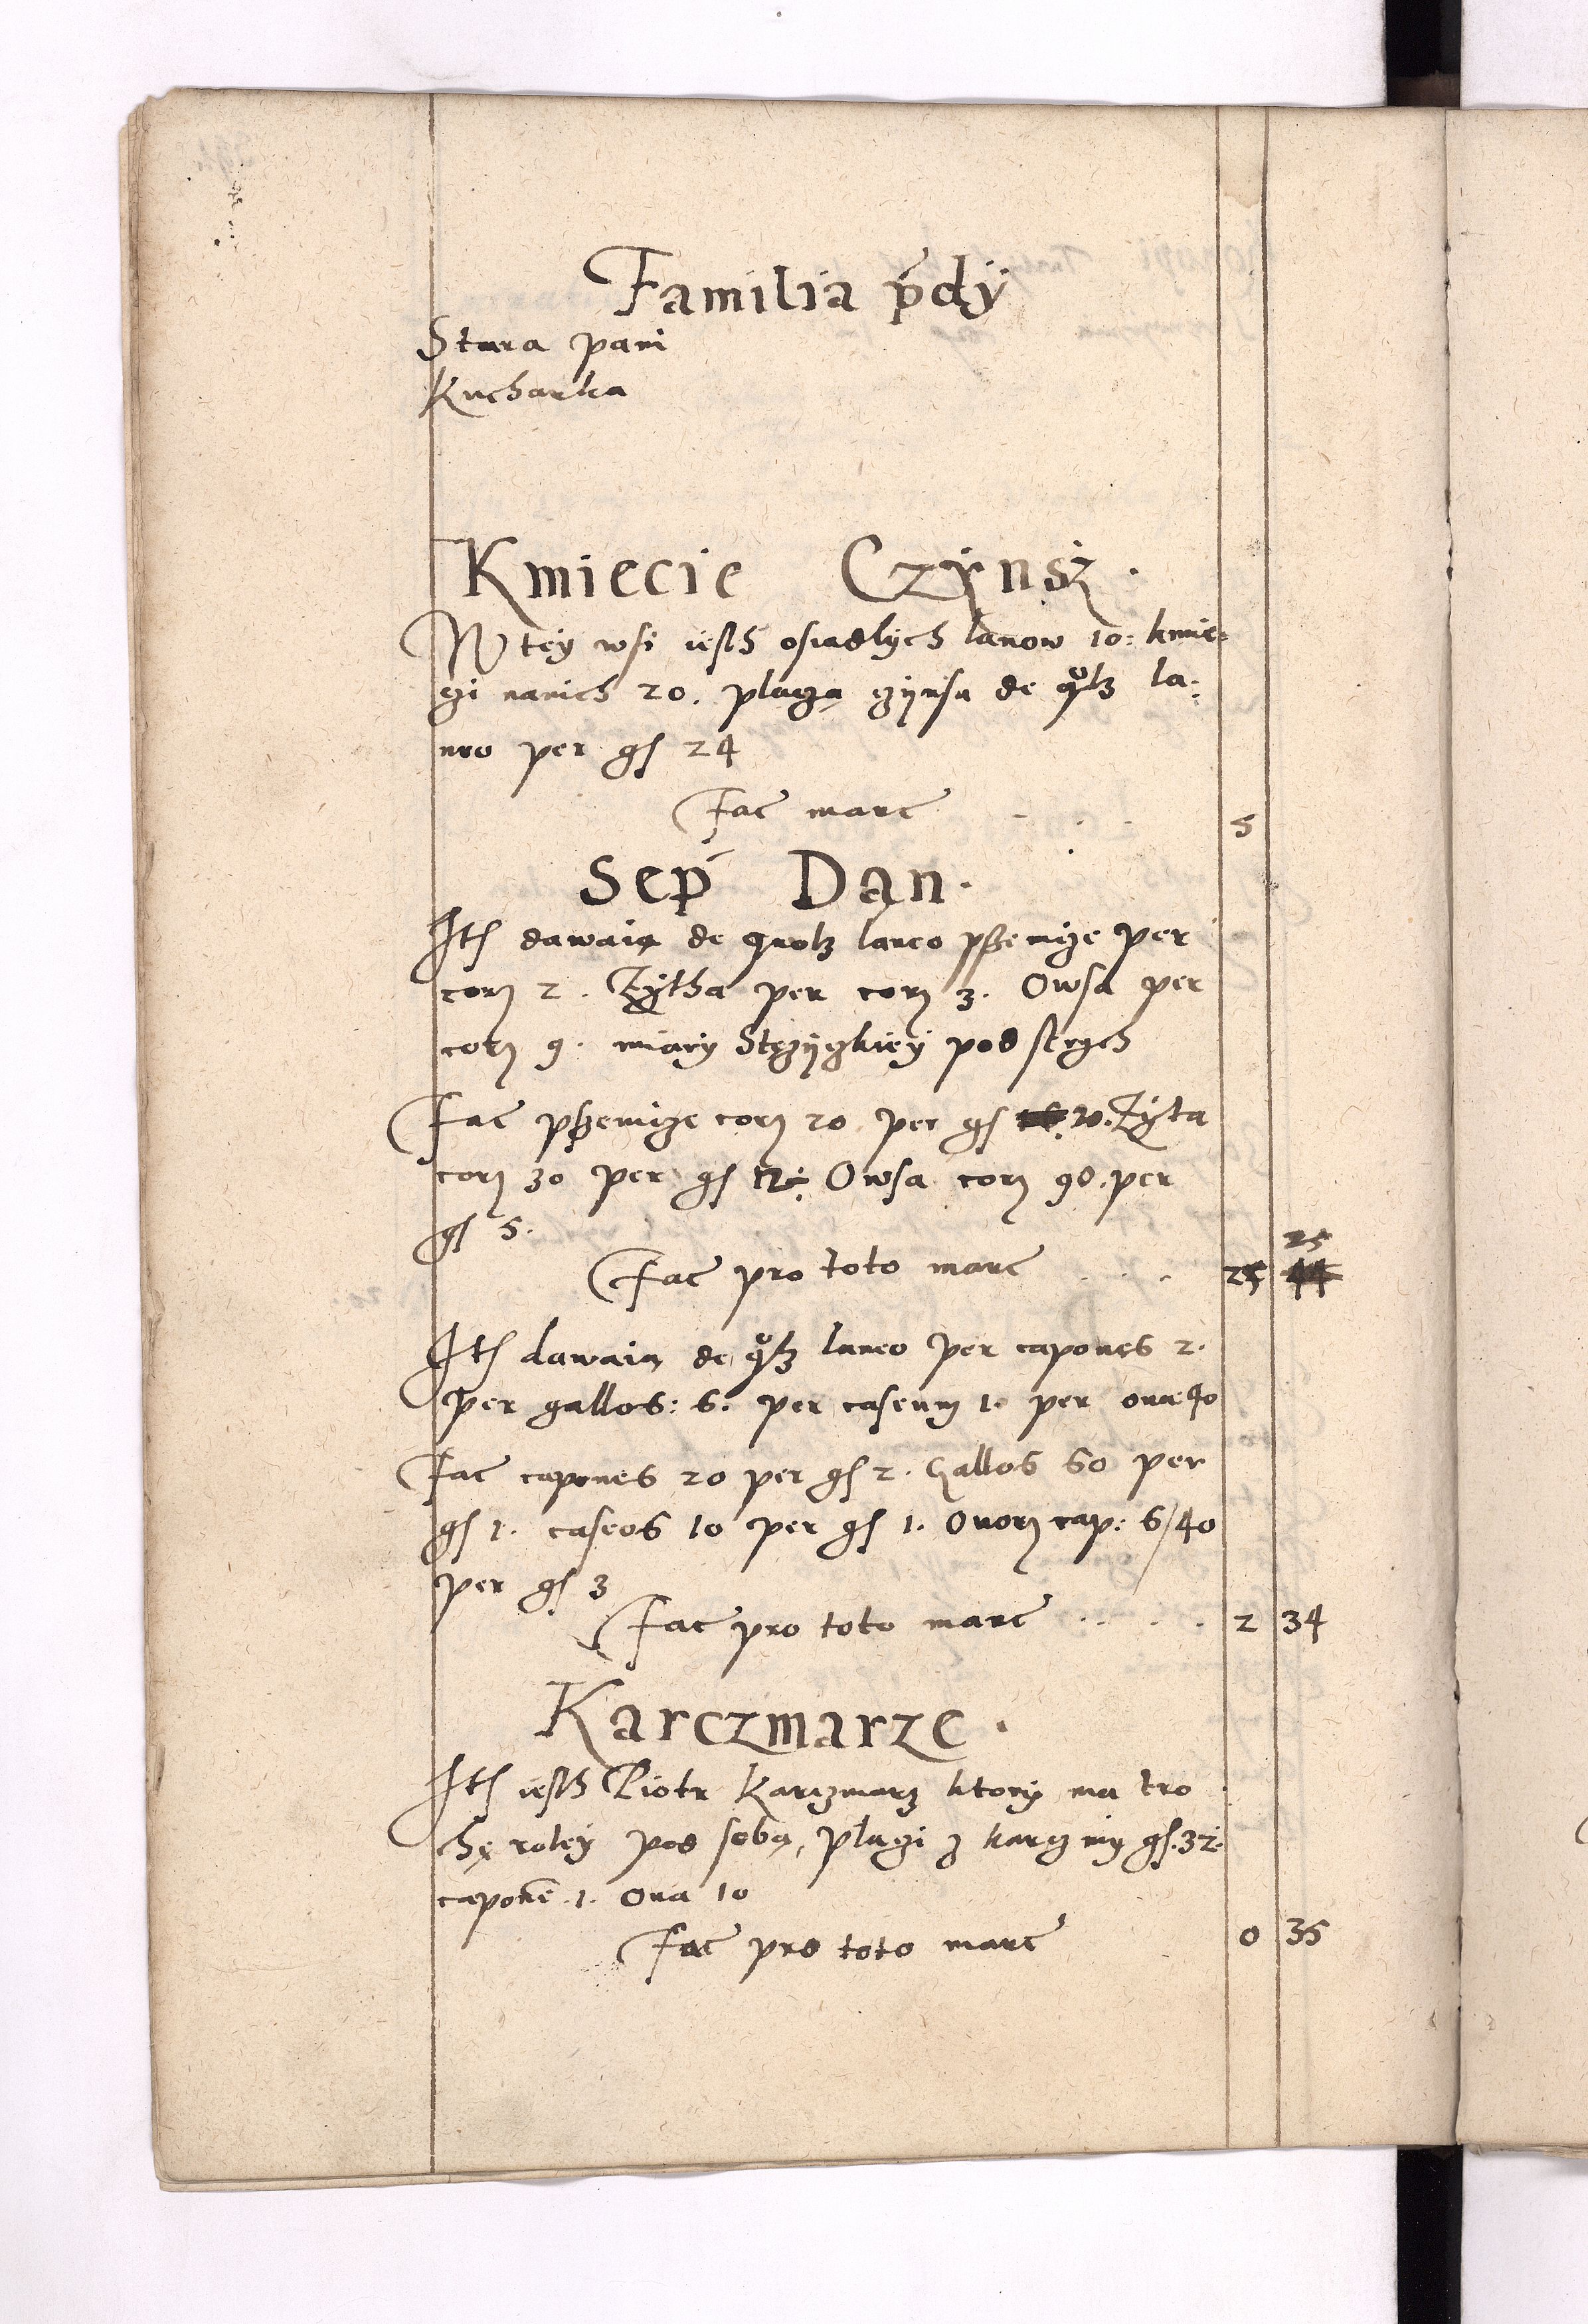 Familia p̄dÿ
Stara pani
Kucharka
Kmiecie Czÿnsz.
W teÿ wsi iesth osiadlÿch lanow 10: kmie-
czi nanich 20. placzą czÿnsu de qͦlz la-
neo per gs 24
Fac̄ marc̄ . . . 5
Sep̄ Dan.
Its dawaią de quolz laneo psżenicze per
corz 2. Zÿtha per corz 3. Owsa per
corz 9. miarÿ Stężÿczkieÿ pod strych
Fac̄ pszenicze corz 20 per gs 20. Zÿta
corz 30 per gs 12. Owsa corz 90. per
gs 5.
25
Fac̄ pro toto marc̄ . . . 25 44
Its dawaią de qͦlz laneo per capones 2.
per gallos: 6. per caseum 1. per oua 40
Fac̄ capones 20 per gs 2. Gallos 60 per
gs 1. caseos 10 per gs 1. Ouorz cap: 6/40
per gs 3
Fac̄ pro toto marc̄ . . . . 2 34
Karczmarze.
Its iesth Piotr Karczmarz ktorÿ ma tro
chę roleÿ pod sobą, placzi z karczmy gs. 32.
caponē. 1. Oua 10
Fac̄ pro toto marc̄ 0 35